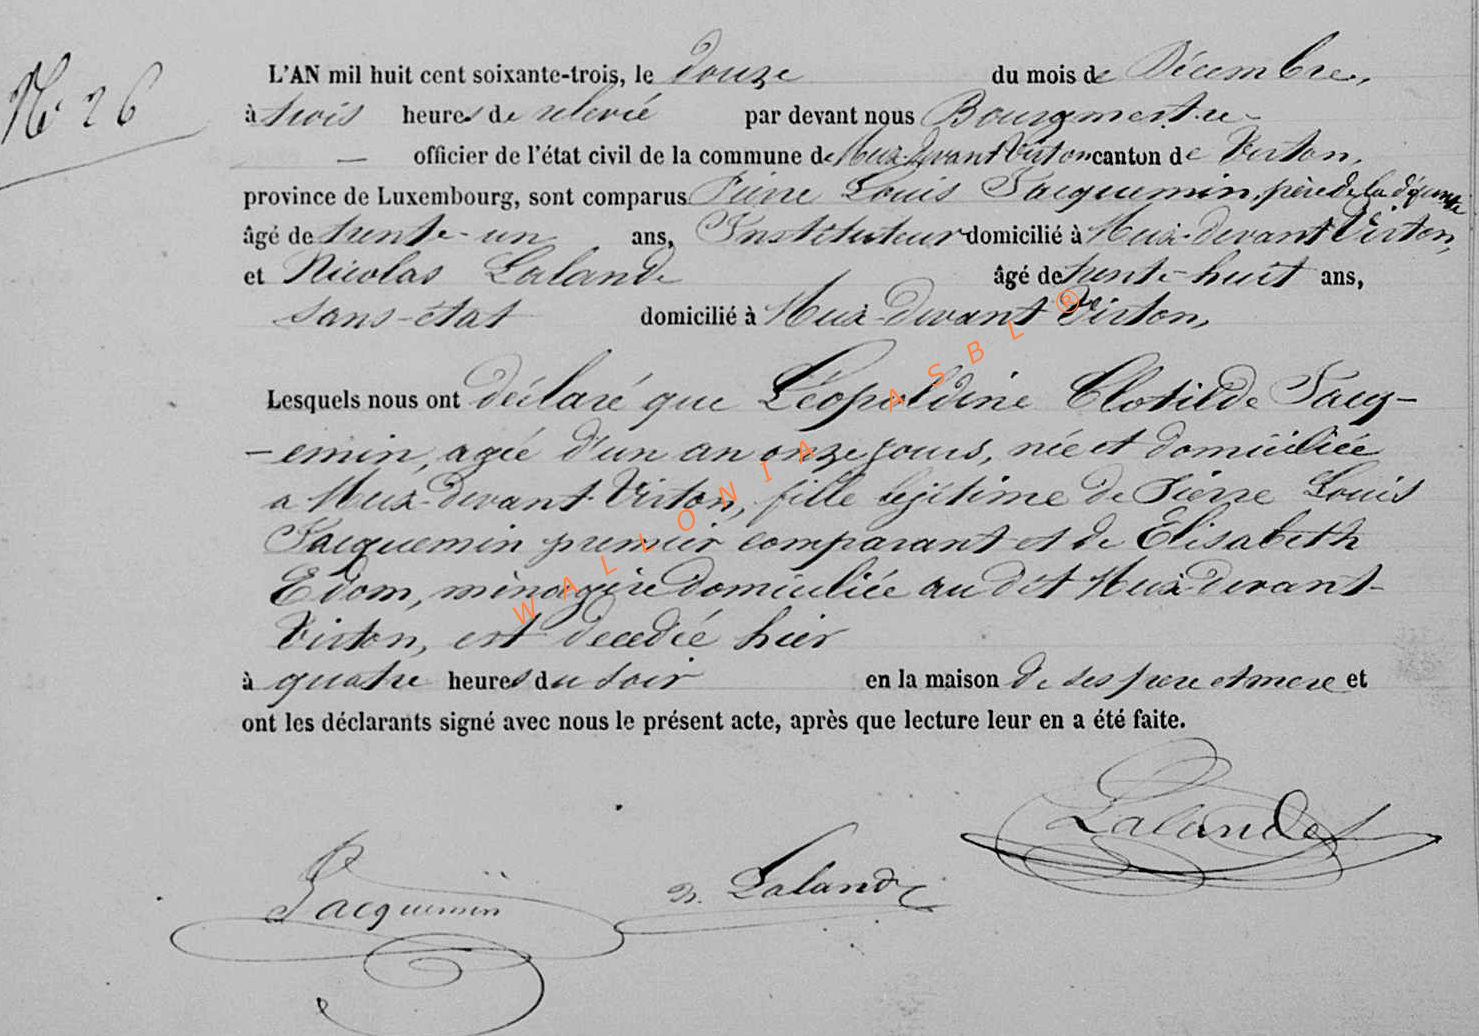 N° 26
L'AN mil huit cent soixante-trois, le douze du mois de Décembre,
à trois heures de relevée par devant nous Bourgmestre
— officier de l'état civil de la commune de Meix-Devant Virton canton de Virton,
province de Luxembourg, sont comparus Pierre Louis Jacquemin, père de la défunte
âgé de trente-un ans, Instituteur domicilié à Meix-devant Virton,
et Nicolas Lalande âgé de trente-huit ans,
sans-état domicilié à Meix-Devant Virton,
Lesquels nous ont déclaré que Léopoldine Clotilde Jacq-
-emin, agée d'un an onze jours, née et domiciliée
a Meix-devant-Virton, fille légitime de Pierre Louis
Jacquemin premier comparant et de Elisabeth
Edom, ménagère domiciliée au dit Meix-devant-
Virton, est decedée hier
à quatre heures du soir en la maison de ses pere et mere et
ont les déclarants signé avec nous le présent acte, après que lecture leur en a été faite.
Lalande
Jacquemin N. Lalande
WALLONIA ASBL ®